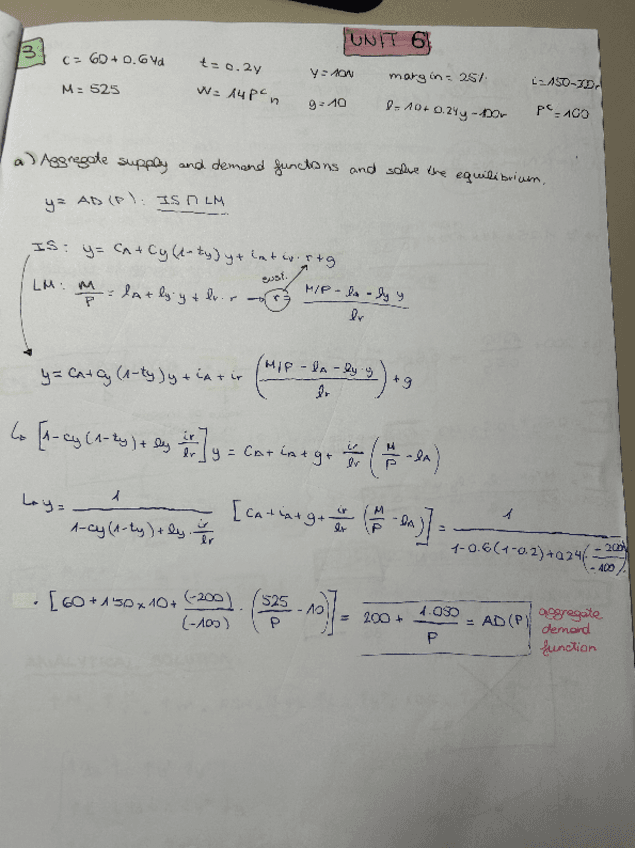 UNIT 6
3 C = 60 + 0.6Yd t = 0.2y y = 10N margin = 25% i = 150 - 200r
M = 525 W = 14P^c n g = 10 l = 10 + 0.24y - 100r P^c = 100
a) Aggregate supply and demand functions and solve the equilibrium.
y = AD(P): IS ∩ LM
IS: y = CA + Cy (1-ty) y + iA + ir · r + g
sust.
LM: M/P = lA + ly · y + lr · r → r = (M/P - lA - ly y) / lr
y = CA + Cy (1-ty) y + iA + ir ( (M/P - lA - ly · y) / lr ) + g
↳ [1 - cy (1-ty) + ly ir/lr] y = CA + iA + g + ir/lr (M/P - lA)
↳ y = 1 / (1 - cy (1-ty) + ly · ir/lr) [CA + iA + g + ir/lr (M/P - lA)] = 1 / (1 - 0.6 (1-0.2) + 0.24 (-200/-100))
· [60 + 150 + 10 + (-200)/(-100) · (525/P - 10)] = 200 + 1.050/P = AD(P) aggregate demand function